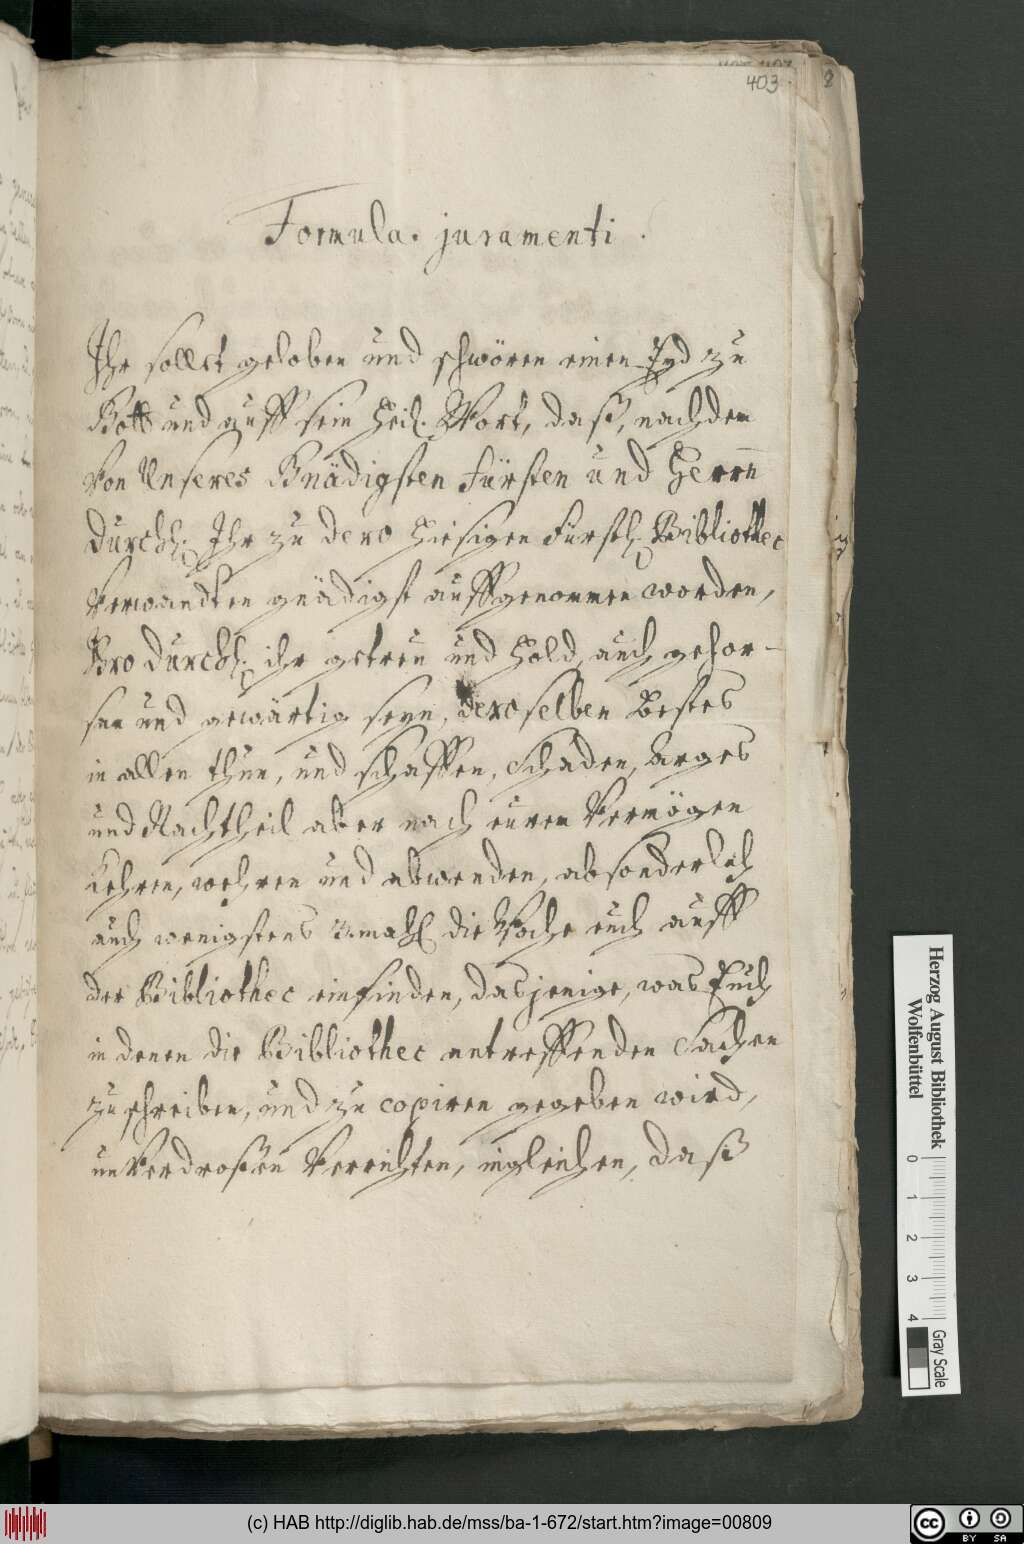 403
8
Formula juramenti.
Ihr sollet geloben und schwören einen Eyd zu
Gott und auff sein Heil. Wort, daß, nachdem
von Unseres Gnädigsten Fürsten und Herrn
Durchl. Ihr zu dero hiesigen Fürstl. Bibliothec
Verwandten gnädigst auffgenommen worden,
Ihro Durchl. ihr getreu und hold, auch gehor-
sam und gewärtig seyn, deroselben Bestes
in allen thun, und schaffen, Schaden, Arges
und Nachtheil aber nach eurem Vermögen
kehren, wehren und abwenden, absonderlich
auch wenigstens 3.mahl die Woche euch auff
der Bibliothec einfinden, dasjenige, was Euch
in denen die Bibliothec antreffenden Sachen
zu schreiben, und zu copiren gegeben wird,
unverdroßen verrichten, ingleichen, daß
Herzog August Bibliothek
Wolfenbüttel
0 1 2 3 4
Gray Scale
(c) HAB http://diglib.hab.de/mss/ba-1-672/start.htm?image=00809
cc BY SA